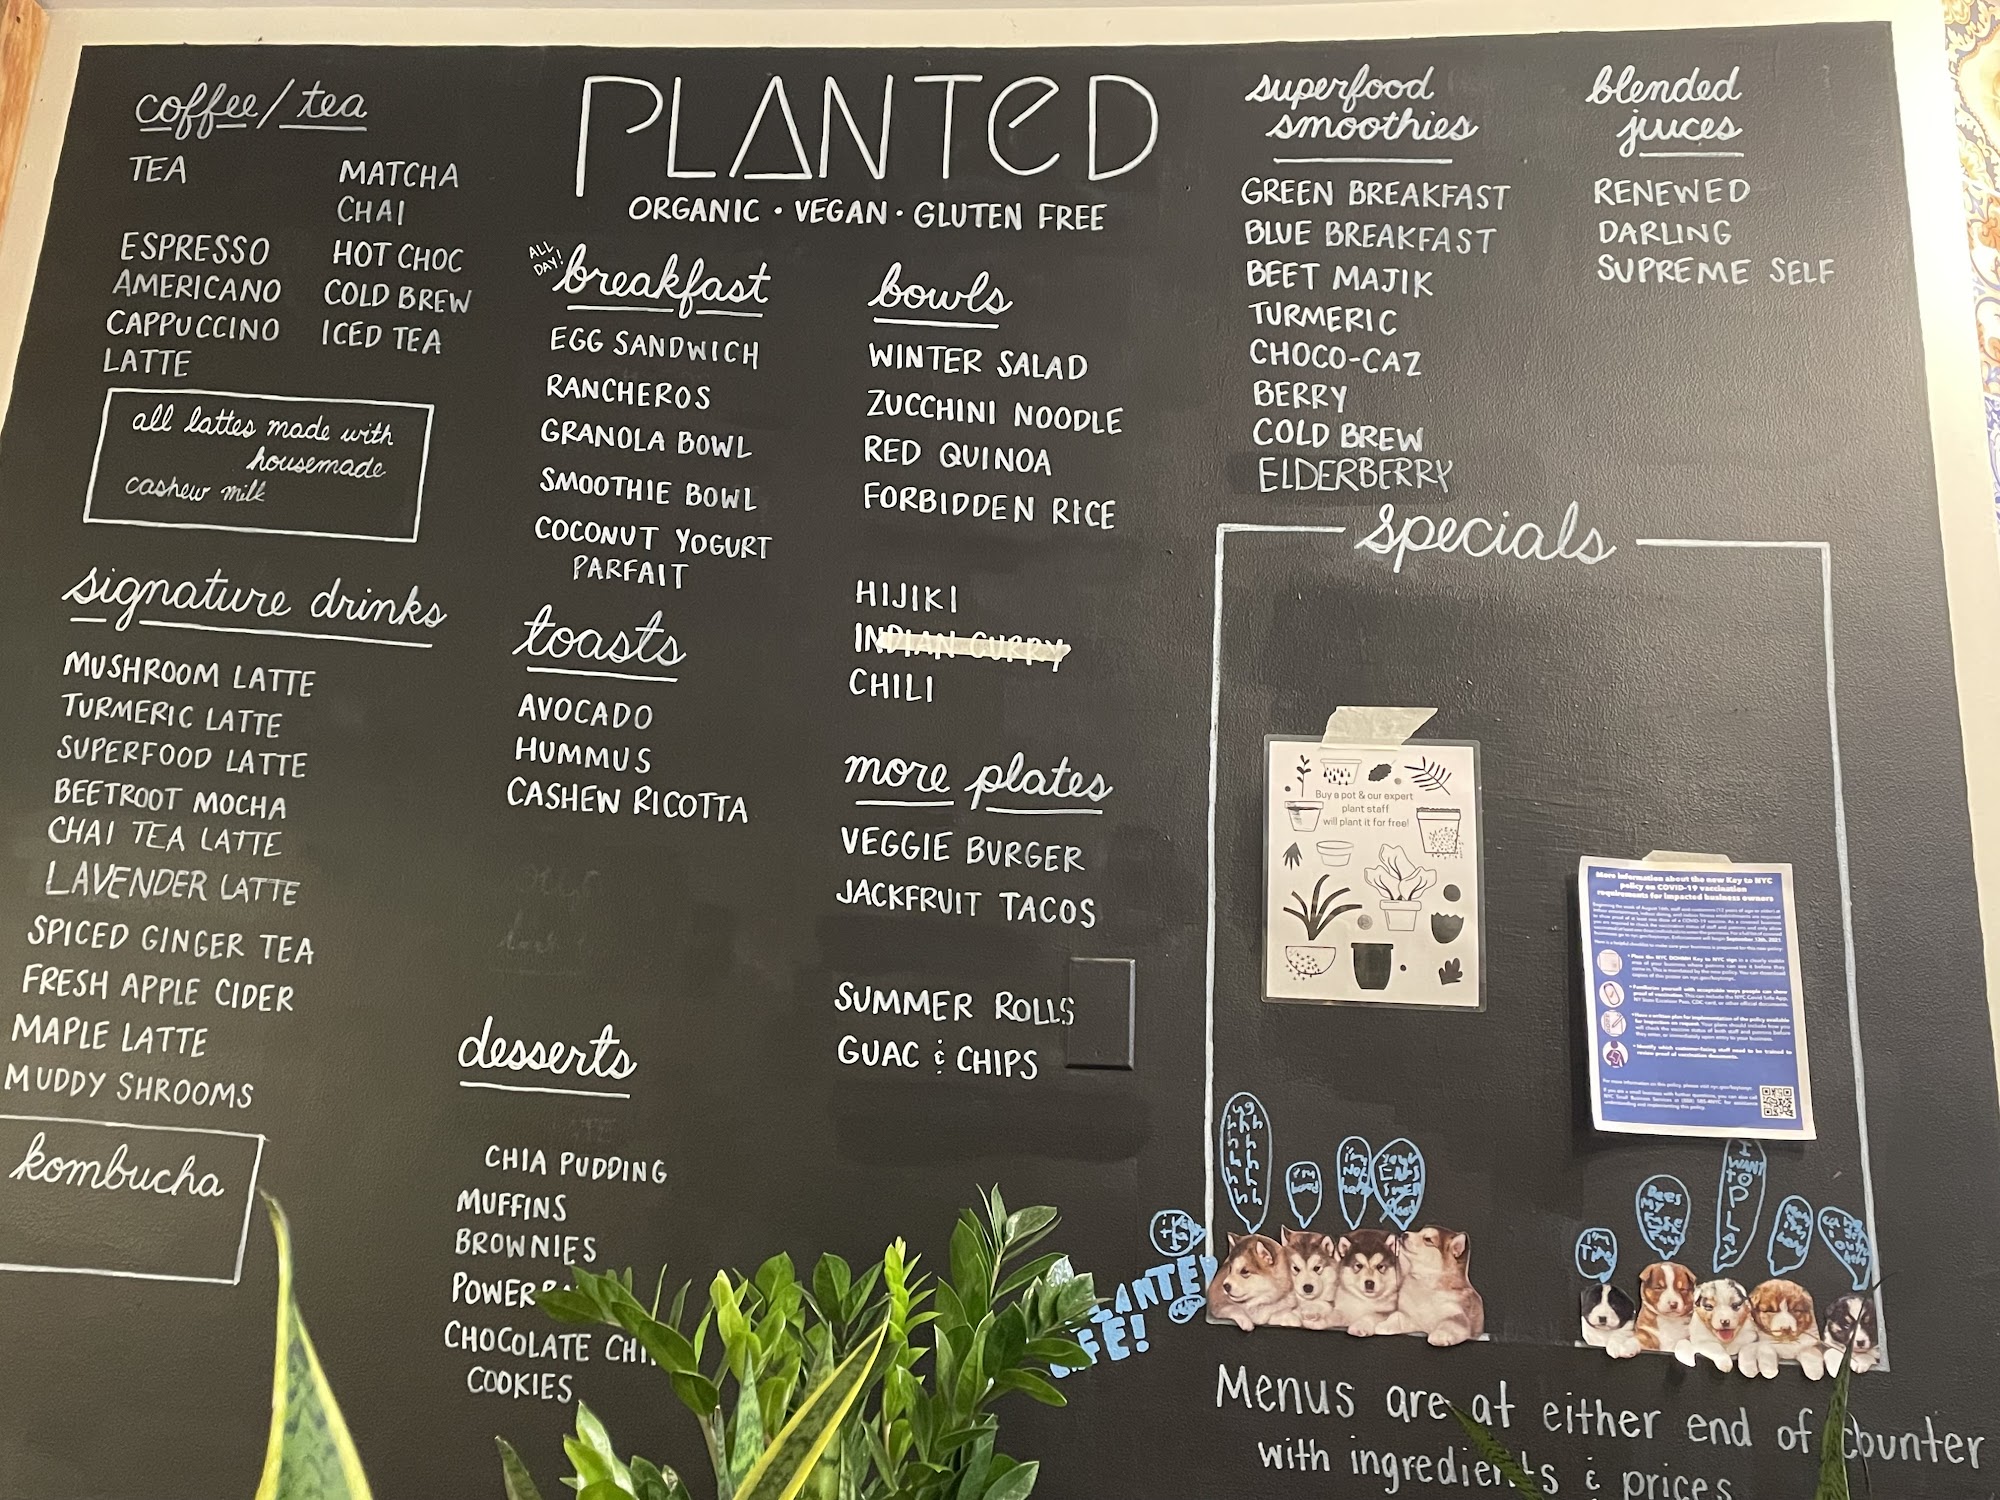 coffee/tea
TEA
ESPRESSO
AMERICANO
CAPPUCCINO
LATTE
MATCHA
CHAI
HOT CHOC
COLD BREW
ICED TEA
all lattes made with
housemade
cashew milk
signature drinks
MUSHROOM LATTE
TURMERIC LATTE
SUPERFOOD LATTE
BEETROOT MOCHA
CHAI TEA LATTE
LAVENDER LATTE
SPICED GINGER TEA
FRESH APPLE CIDER
MAPLE LATTE
MUDDY SHROOMS
kombucha
PLANTED
ORGANIC • VEGAN • GLUTEN FREE
ALL
DAY!
breakfast
EGG SANDWICH
RANCHEROS
GRANOLA BOWL
SMOOTHIE BOWL
COCONUT YOGURT
PARFAIT
toasts
AVOCADO
HUMMUS
CASHEW RICOTTA
desserts
CHIA PUDDING
MUFFINS
BROWNIES
POWER
CHOCOLATE
COOKIES
bowls
WINTER SALAD
ZUCCHINI NOODLE
RED QUINOA
FORBIDDEN RICE
HIJIKI
INDIAN CURRY
CHILI
more plates
VEGGIE BURGER
JACKFRUIT TACOS
SUMMER ROLLS
GUAC & CHIPS
superfood
smoothies
GREEN BREAKFAST
BLUE BREAKFAST
BEET MAJIK
TURMERIC
CHOCO-CAZ
BERRY
COLD BREW
ELDERBERRY
blended
juices
RENEWED
DARLING
SUPREME SELF
specials
Buy a pot & our expert
plant staff
will plant it for free!
More information about the new Key to NYC
policy on COVID-19 vaccination
requirements for impacted business owners
I
WANT
TO
PLAY
Menus are at either end of counter
with ingredients & prices